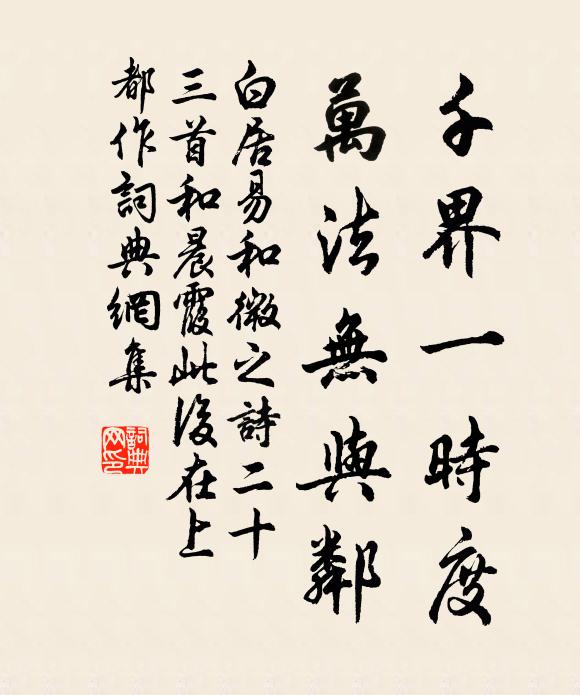 千界一時度
萬法無與鄰
白居易和微之詩二十
三首和晨霞此後在上
都作詞典網集
詞典
网印